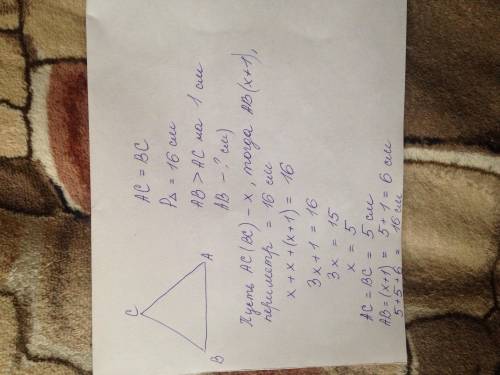 C
B
A
AC = BC
P∆ = 16 см
AB > AC на 1 см
AB - ? см)
Пусть AC(BC) - x, тогда AB(x+1),
периметр = 16 см
x + x + (x+1) = 16
3x + 1 = 16
3x = 15
x = 5
AC = BC = 5 см
AB = (x+1) = 5 + 1 = 6 см
5 + 5 + 6 = 16 см